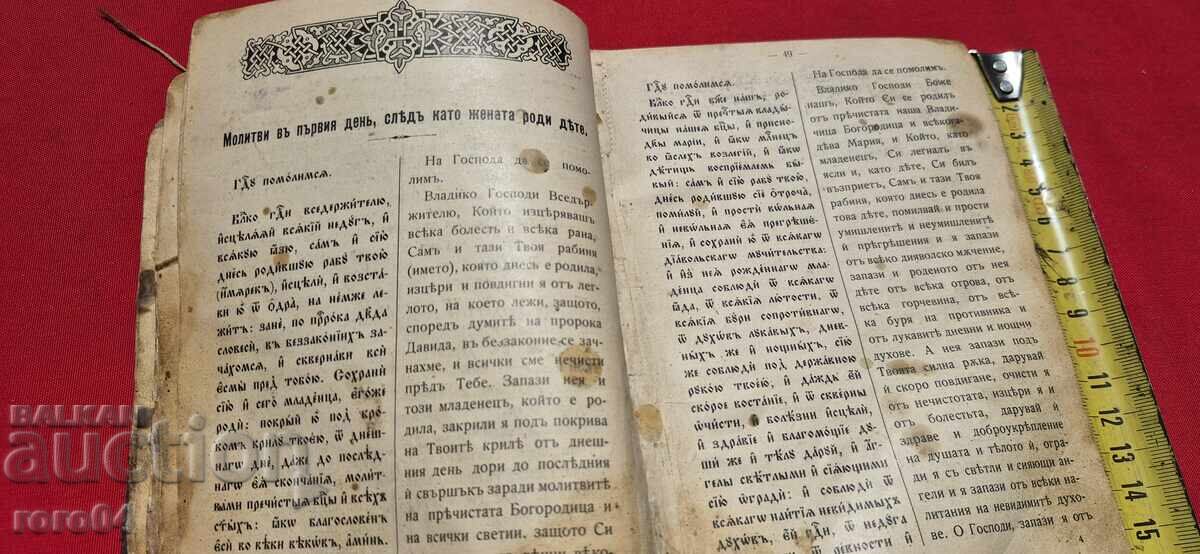 Молитви въ първия день, слѣдъ като жената роди дѣте.
Гдⷭ҇ꙋ помо́лимсѧ.
Влⷣко гдⷭ҇и вседержи́телю,
и҆сцѣлѧ́ѧй всѧ́кїй недꙋ́гъ, и҆
всѧ́кꙋю ꙗ҆́зю, са́мъ и҆ сїю̀
дне́сь роди́вшꙋю рабꙋ̀ твою̀
(и҆́мѧрекъ), и҆сцѣлѝ, и҆ возста́-
ви ю҆̀ ѿ ѻ҆дра̀, на не́мже ле-
жи́тъ: занѐ, по прⷪ҇ро́ка дв҃да
словесѝ, въ беззако́нїихъ за-
ча́хомсѧ, и҆ скве́рнави всѝ
є҆смы̀ пред̾ тобо́ю. Сохранѝ
сїю̀ и҆ сего̀ младе́нца, є҆го́же
родѝ: покры́й ю҆̀ под̾ кро́-
вомъ крилꙋ̀ твоє́ю, ѿ дне́ш-
нѧгѡ днѐ, да́же до послѣ́д-
нѧгѡ є҆ѧ̀ сконча́нїѧ, моли́т-
вами пречⷭ҇тыѧ бцⷣы и҆ всѣ́хъ
ст҃ы́хъ: ꙗ҆́кѡ благослове́нъ
є҆сѝ во вѣ́ки вѣкѡ́въ, а҆ми́нь.
На Господа да се помо-
лимъ.
Владико Господи Вседър-
жителю, Който изцѣрявашъ
всѣка болесть и всѣка рана,
Самъ и тази Твоя рабиня
(името), която днесь е родила,
изцѣри и повдигни я отъ лег-
лото, на което лежи, защото,
споредъ думитѣ на пророка
Давида, въ беззаконие се зач-
нахме, и всички сме нечисти
прѣдъ Тебе. Запази нея и
този младенецъ, който е ро-
дила, закрили я подъ покрива
на Твоитѣ крилѣ отъ днеш-
ния день дори до послѣдния
ѝ свършъкъ заради молитвитѣ
на прѣчистата Богородица и
на всички светии, защото Си
— 49 —
Гдⷭ҇ꙋ помо́лимсѧ.
Влⷣко гдⷭ҇и бж҃е на́шъ, ро-
ди́выйсѧ ѿ пречⷭ҇тыѧ влады́-
чицы на́шеѧ бцⷣы, и҆ присно-
дв҃ы марі́и, и҆ ꙗ҆́кѡ младе́нецъ
во ꙗ҆́слехъ возлегі́й, и҆ ꙗ҆́кѡ
дѣ́тищь воспрїе́млемь бы́-
вый: са́мъ и҆ сїю̀ рабꙋ̀ твою̀,
дне́сь роди́вшꙋю сїѐ ѻ҆троча̀,
поми́лꙋй, и҆ простѝ вѡ́льнаѧ
и҆ невѡ́льнаѧ є҆ѧ̀ прегрѣше́-
нїѧ, и҆ сохранѝ ю҆̀ ѿ всѧ́кагѡ
дїа́вольскагѡ мꙋчи́тельства:
и҆ и҆з̾ неѧ̀ рожде́ннаго мла-
де́нца соблюдѝ ѿ всѧ́кагѡ
ꙗ҆́да, ѿ всѧ́кїѧ лю́тости, ѿ
всѧ́кїѧ бꙋ́ри сопроти́внагѡ,
ѿ дꙋхѡ́въ лꙋка́выхъ, дне́в-
ныхъ же и҆ нощны́хъ, сїю̀
же соблюдѝ под̾ держа́вною
рꙋко́ю твое́ю, и҆ да́ждь є҆́й
ско́рое воста́нїе, и҆ ѿ скве́рны
ѡ҆чи́сти, и҆ болѣ̑зни и҆сцѣлѝ,
и҆ здра́вїе и҆ благомо́щїе дꙋ-
шѝ же и҆ тѣ́лꙋ да́рꙋй, и҆ а҆́гг҃е-
лы свѣ́тлыми и҆ сїѧ́ющими
сїю̀ ѡ҆градѝ: и҆ соблюдѝ ѿ
всѧ́кагѡ наи́тїѧ неви́димыхъ
дꙋхѡ́въ, є҆́й гдⷭ҇и, ѿ недꙋ́га
На Господа да се помолимъ.
Владико Господи Боже
нашъ, Който Си се родилъ
отъ прѣчистата наша Влади-
чица Богородица и всѣкога-
дѣва Мария, и Който, като
младенецъ, Си легналъ въ
ясли и, като дѣте, Си билъ
възприетъ, Самъ и тази Твоя
рабиня, която днесь е родила
това дѣте, помилвай и прости
умишленитѣ и неумишленитѣ
ѝ прѣгрѣшения и я запази
отъ всѣко дияволско мѫчение,
запази и роденото отъ нея
дѣте отъ всѣка отрова, отъ
всѣка горчевина, отъ всѣ-
ка буря на противника и
отъ лукавитѣ дневни и нощни
духове. А нея запази подъ
Твоята силна рѫка, дарувай
ѝ скоро повдигане, очисти я
отъ нечистотата, изцѣри я и
отъ болестьта, дарувай ѝ
здраве и доброукрѣпление
на душата и тѣлото ѝ, огра-
ди я съ свѣтли и сияющи ан-
гели и я запази отъ всѣки на-
литания на невидимитѣ духо-
ве. О Господи, запази я отъ
4
2
3
4
5
6
7
8
9
10
11
12
13
14
15
BALKAN
auction
roro04